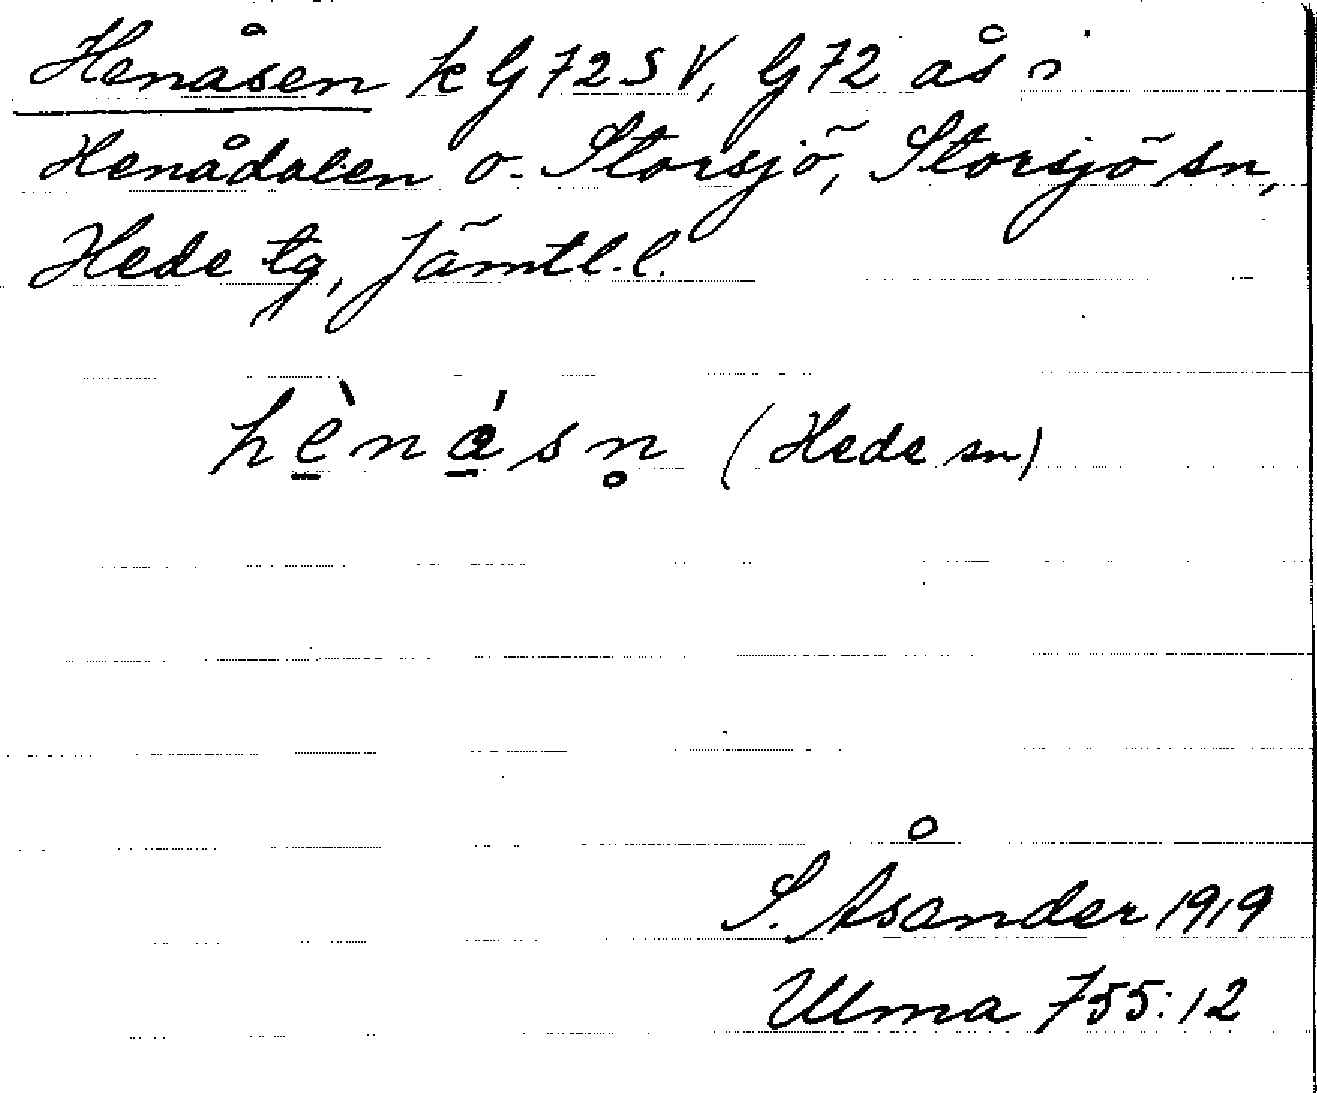 Henåsen k G 72 SV, G 72 ås i
Henådalen o. Storsjö, Storsjö sn,
Hede tg, Jämtl. l.
hè̱ná̱sn̥ (Hede sn)
S. Åsander 1919
Ulma 755:12